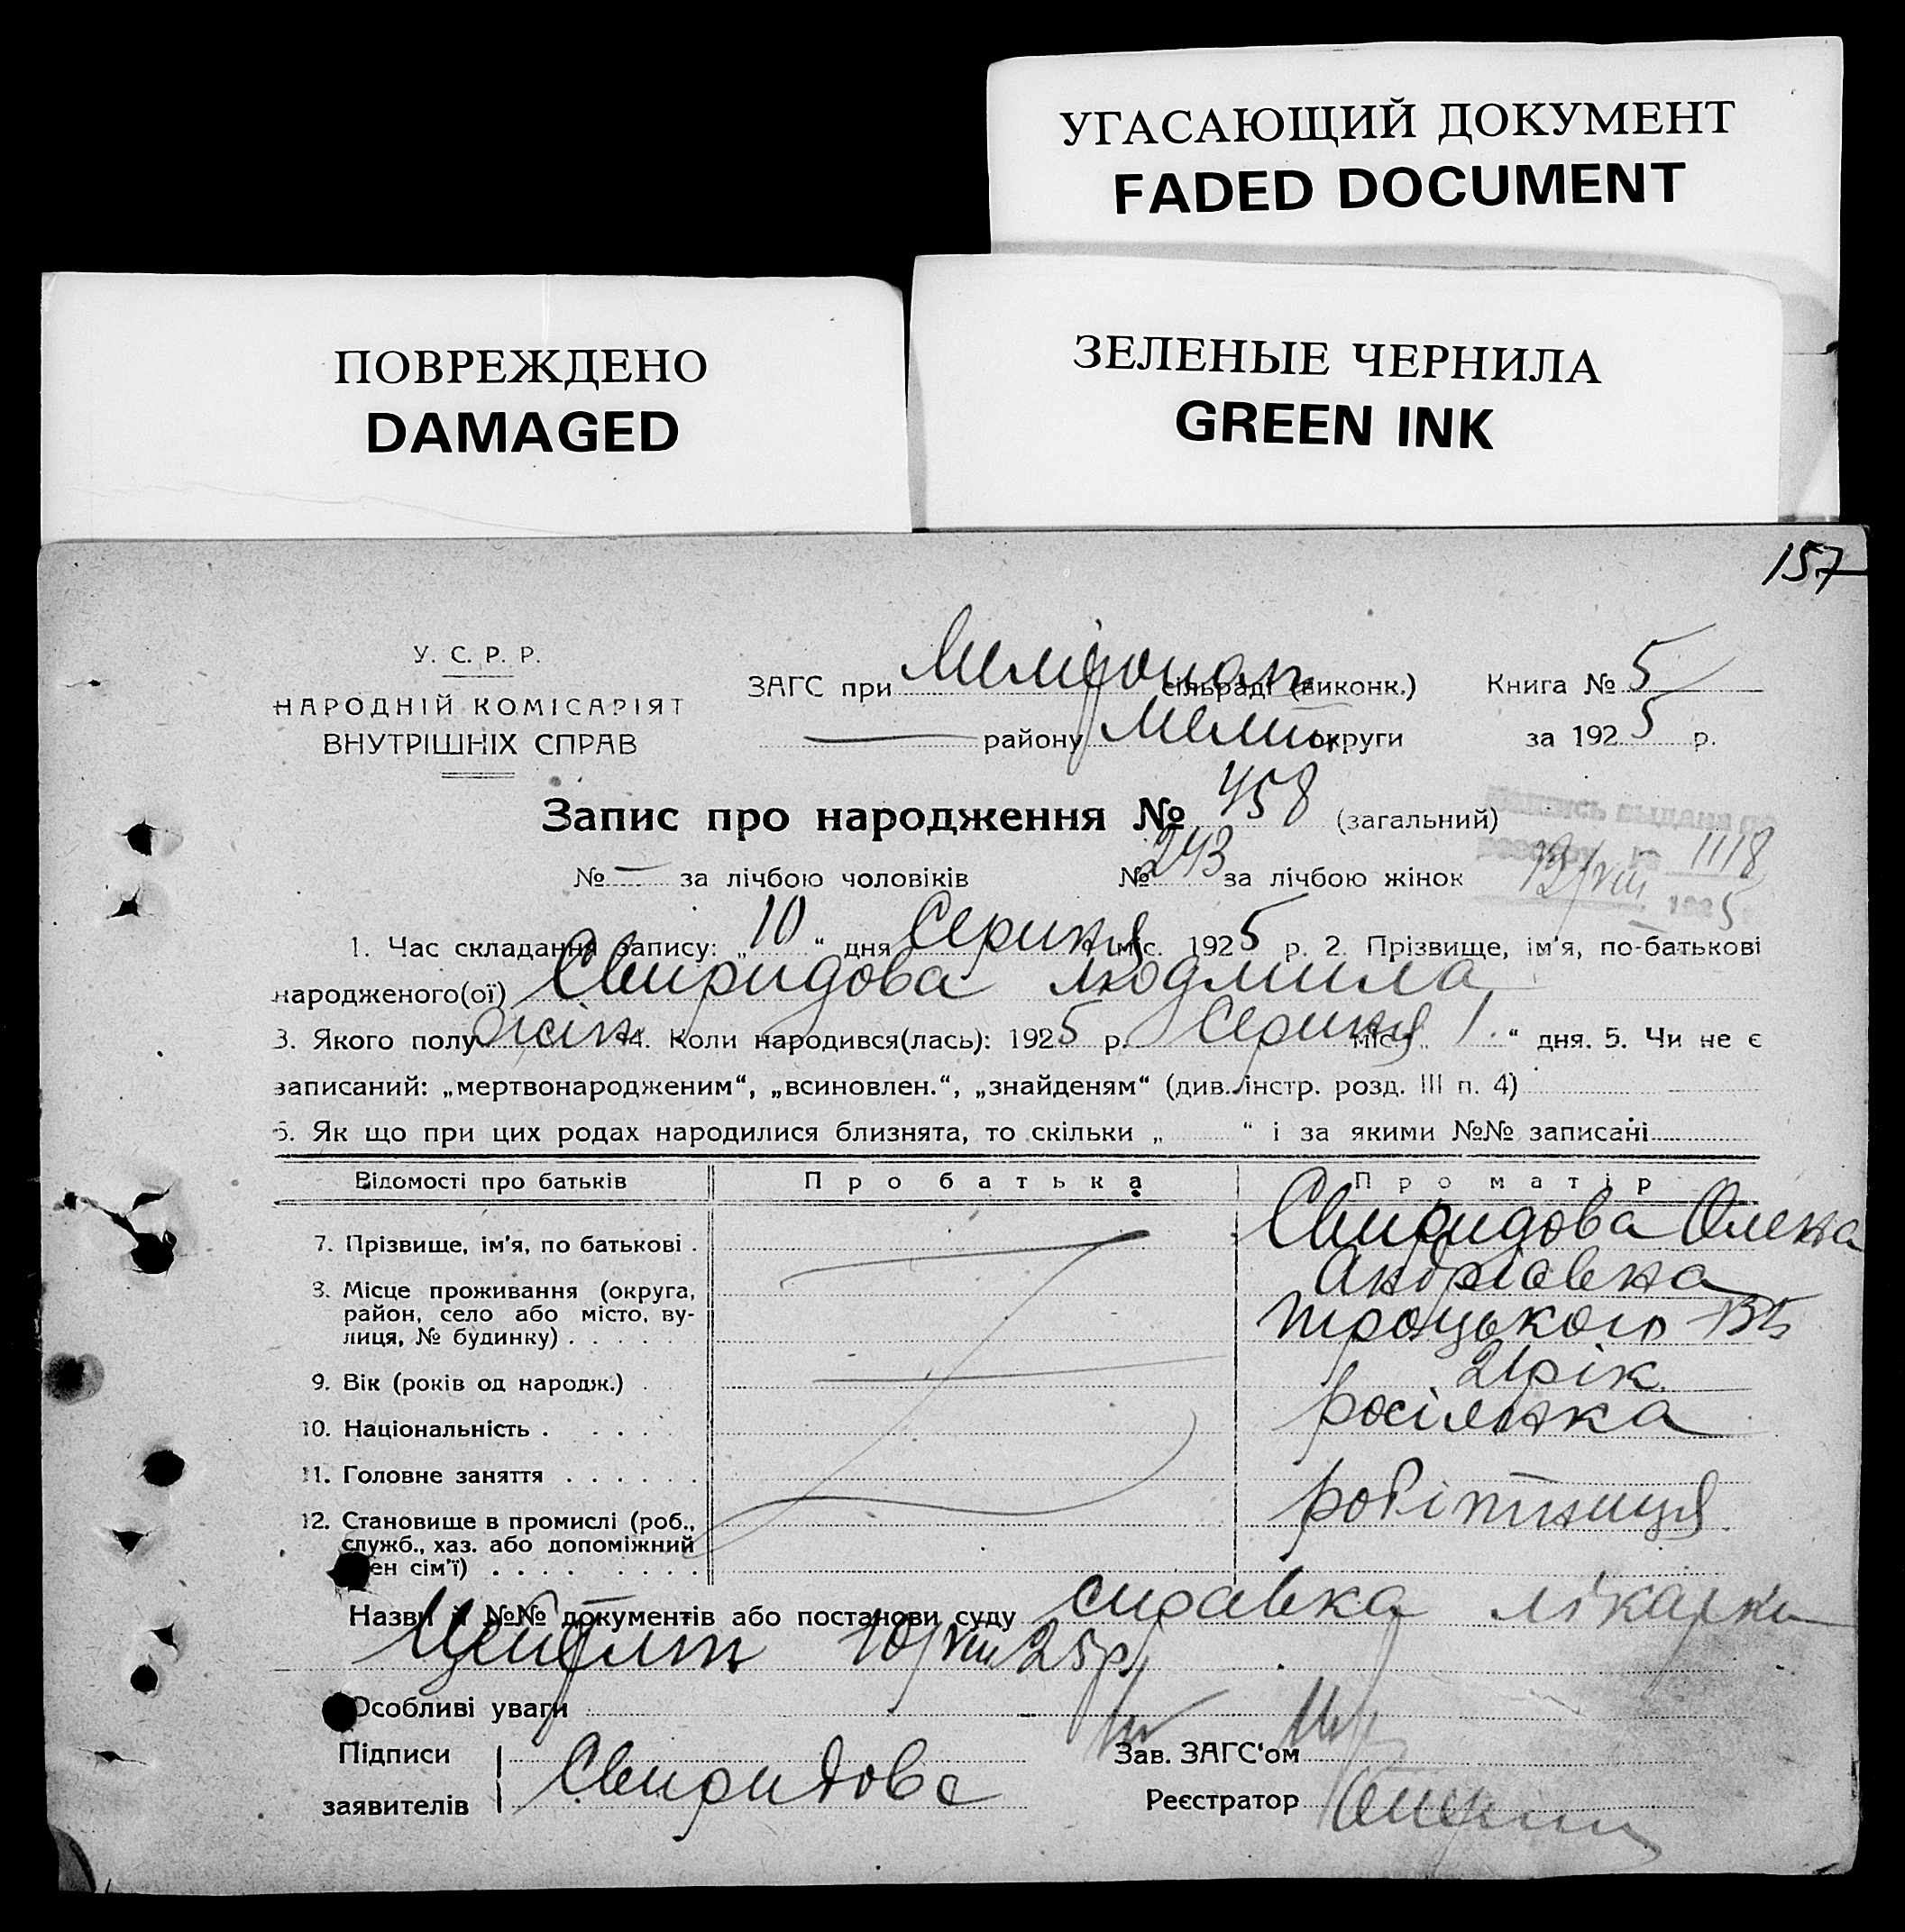 УГАСАЮЩИЙ ДОКУМЕНТ
FADED DOCUMENT
ПОВРЕЖДЕНО
DAMAGED
ЗЕЛЕНЫЕ ЧЕРНИЛА
GREEN INK
157
У. С. Р. Р.
НАРОДНІЙ КОМІСАРІЯТ
ВНУТРІШНІХ СПРАВ
ЗАГС при сільраді (виконк.) Книга № 5
району округи за 1925 р.
Запис про народження № 458 (загальний)
№ — за лічбою чоловіків № 243 за лічбою жінок
1118
12/VIII 1925
1. Час складання запису: „10“ дня Серпня міс. 1925 р. 2. Прізвище, ім'я, по-батькові
народженого(ої) Свиридова Людмила
3. Якого полу жін 4. Коли народився(лась): 1925 р. Серпня міс. „1“ дня. 5. Чи не є
записаний: „мертвонародженим“, „всиновлен.“, „знайденям“ (див. інстр. розд. III п. 4)
6. Як що при цих родах народилися близнята, то скільки „ “ і за якими №№ записані
Відомості про батьків Про батька Про матір
7. Прізвище, ім'я, по батькові . Свиридова Олена
Андріївна
8. Місце проживання (округа,
район, село або місто, ву-
лиця, № будинку) . . . . . Троцького
9. Вік (років од народж.) . 21 рік
10. Національність . . . . . росіянка
11. Головне заняття . . . . . .
12. Становище в промислі (роб.,
служб., хаз. або допоміжний
ен сім'ї) . . . . . . . . . робітниця
Назви й №№ документів або постанови суду справка лікарки
10/VIII 25 р.
Особливі уваги
Підписи
заявителів Свиридова
Зав. ЗАГС'ом
Реєстратор